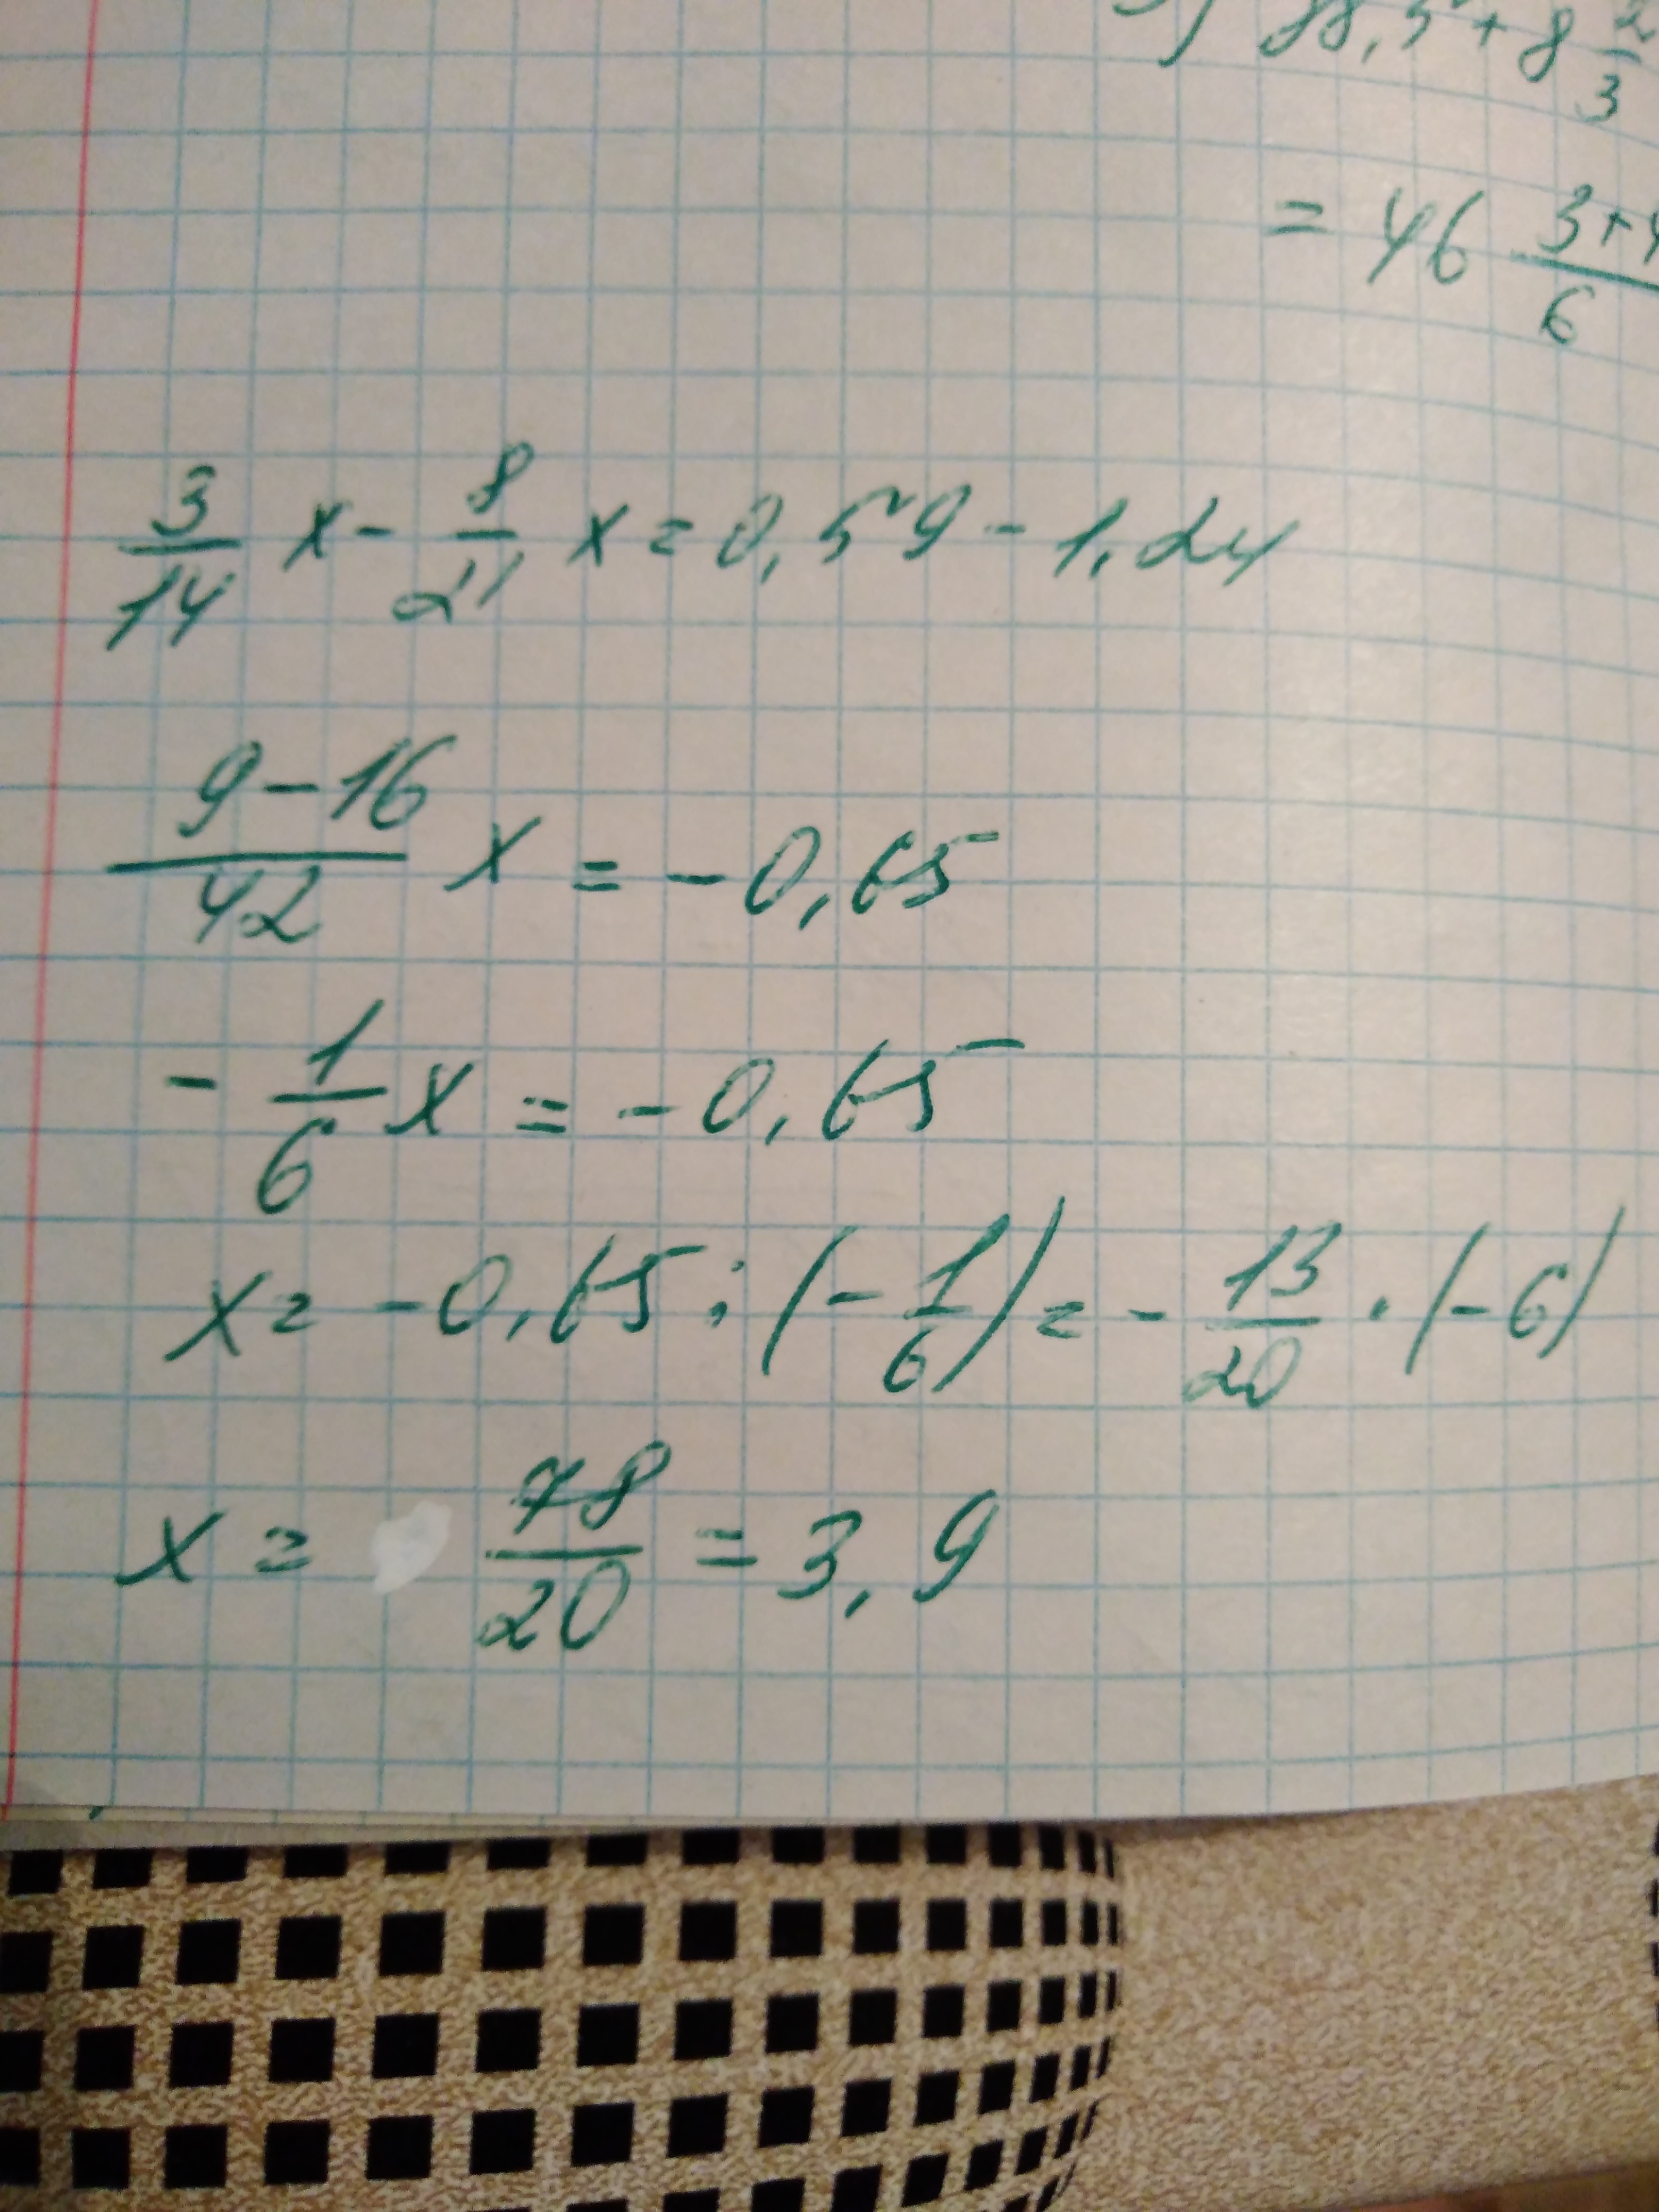 88,5 + 8 2/3
= 46 3+4/6
3/14 x - 8/21 x = 0,59 - 1,24
9-16/42 x = -0,65
- 1/6 x = -0,65
x = -0,65 : (- 1/6) = - 13/20 · (-6)
x = 78/20 = 3,9